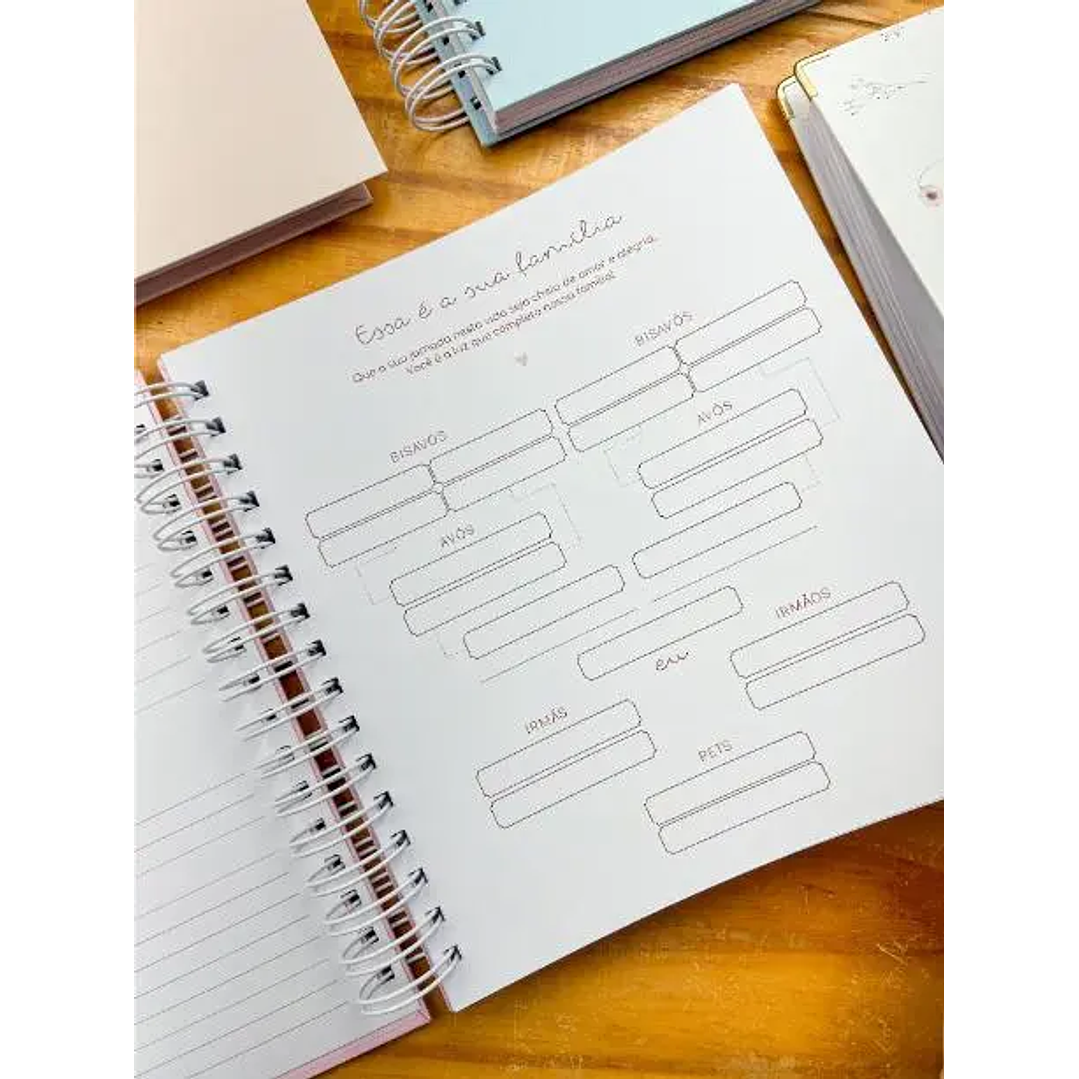 Essa é a sua família
Que a sua jornada nesta vida seja cheia de amor e alegria.
Você é a luz que completa nossa família!
BISAVÓS
BISAVÓS
AVÓS
AVÓS
eu
IRMÃOS
IRMÃS
PETS